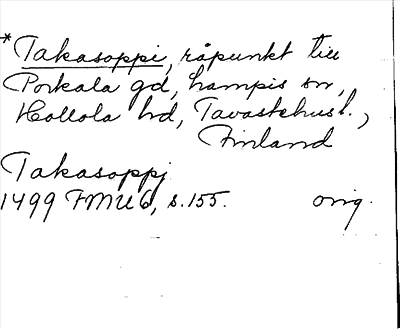 *Takasoppi, råpunkt till
Porkala gd, Lampis sn,
Hollola hd, Tavastehusl.,
Finland
Takasoppj
1499 FMU 6, s. 155. orig.